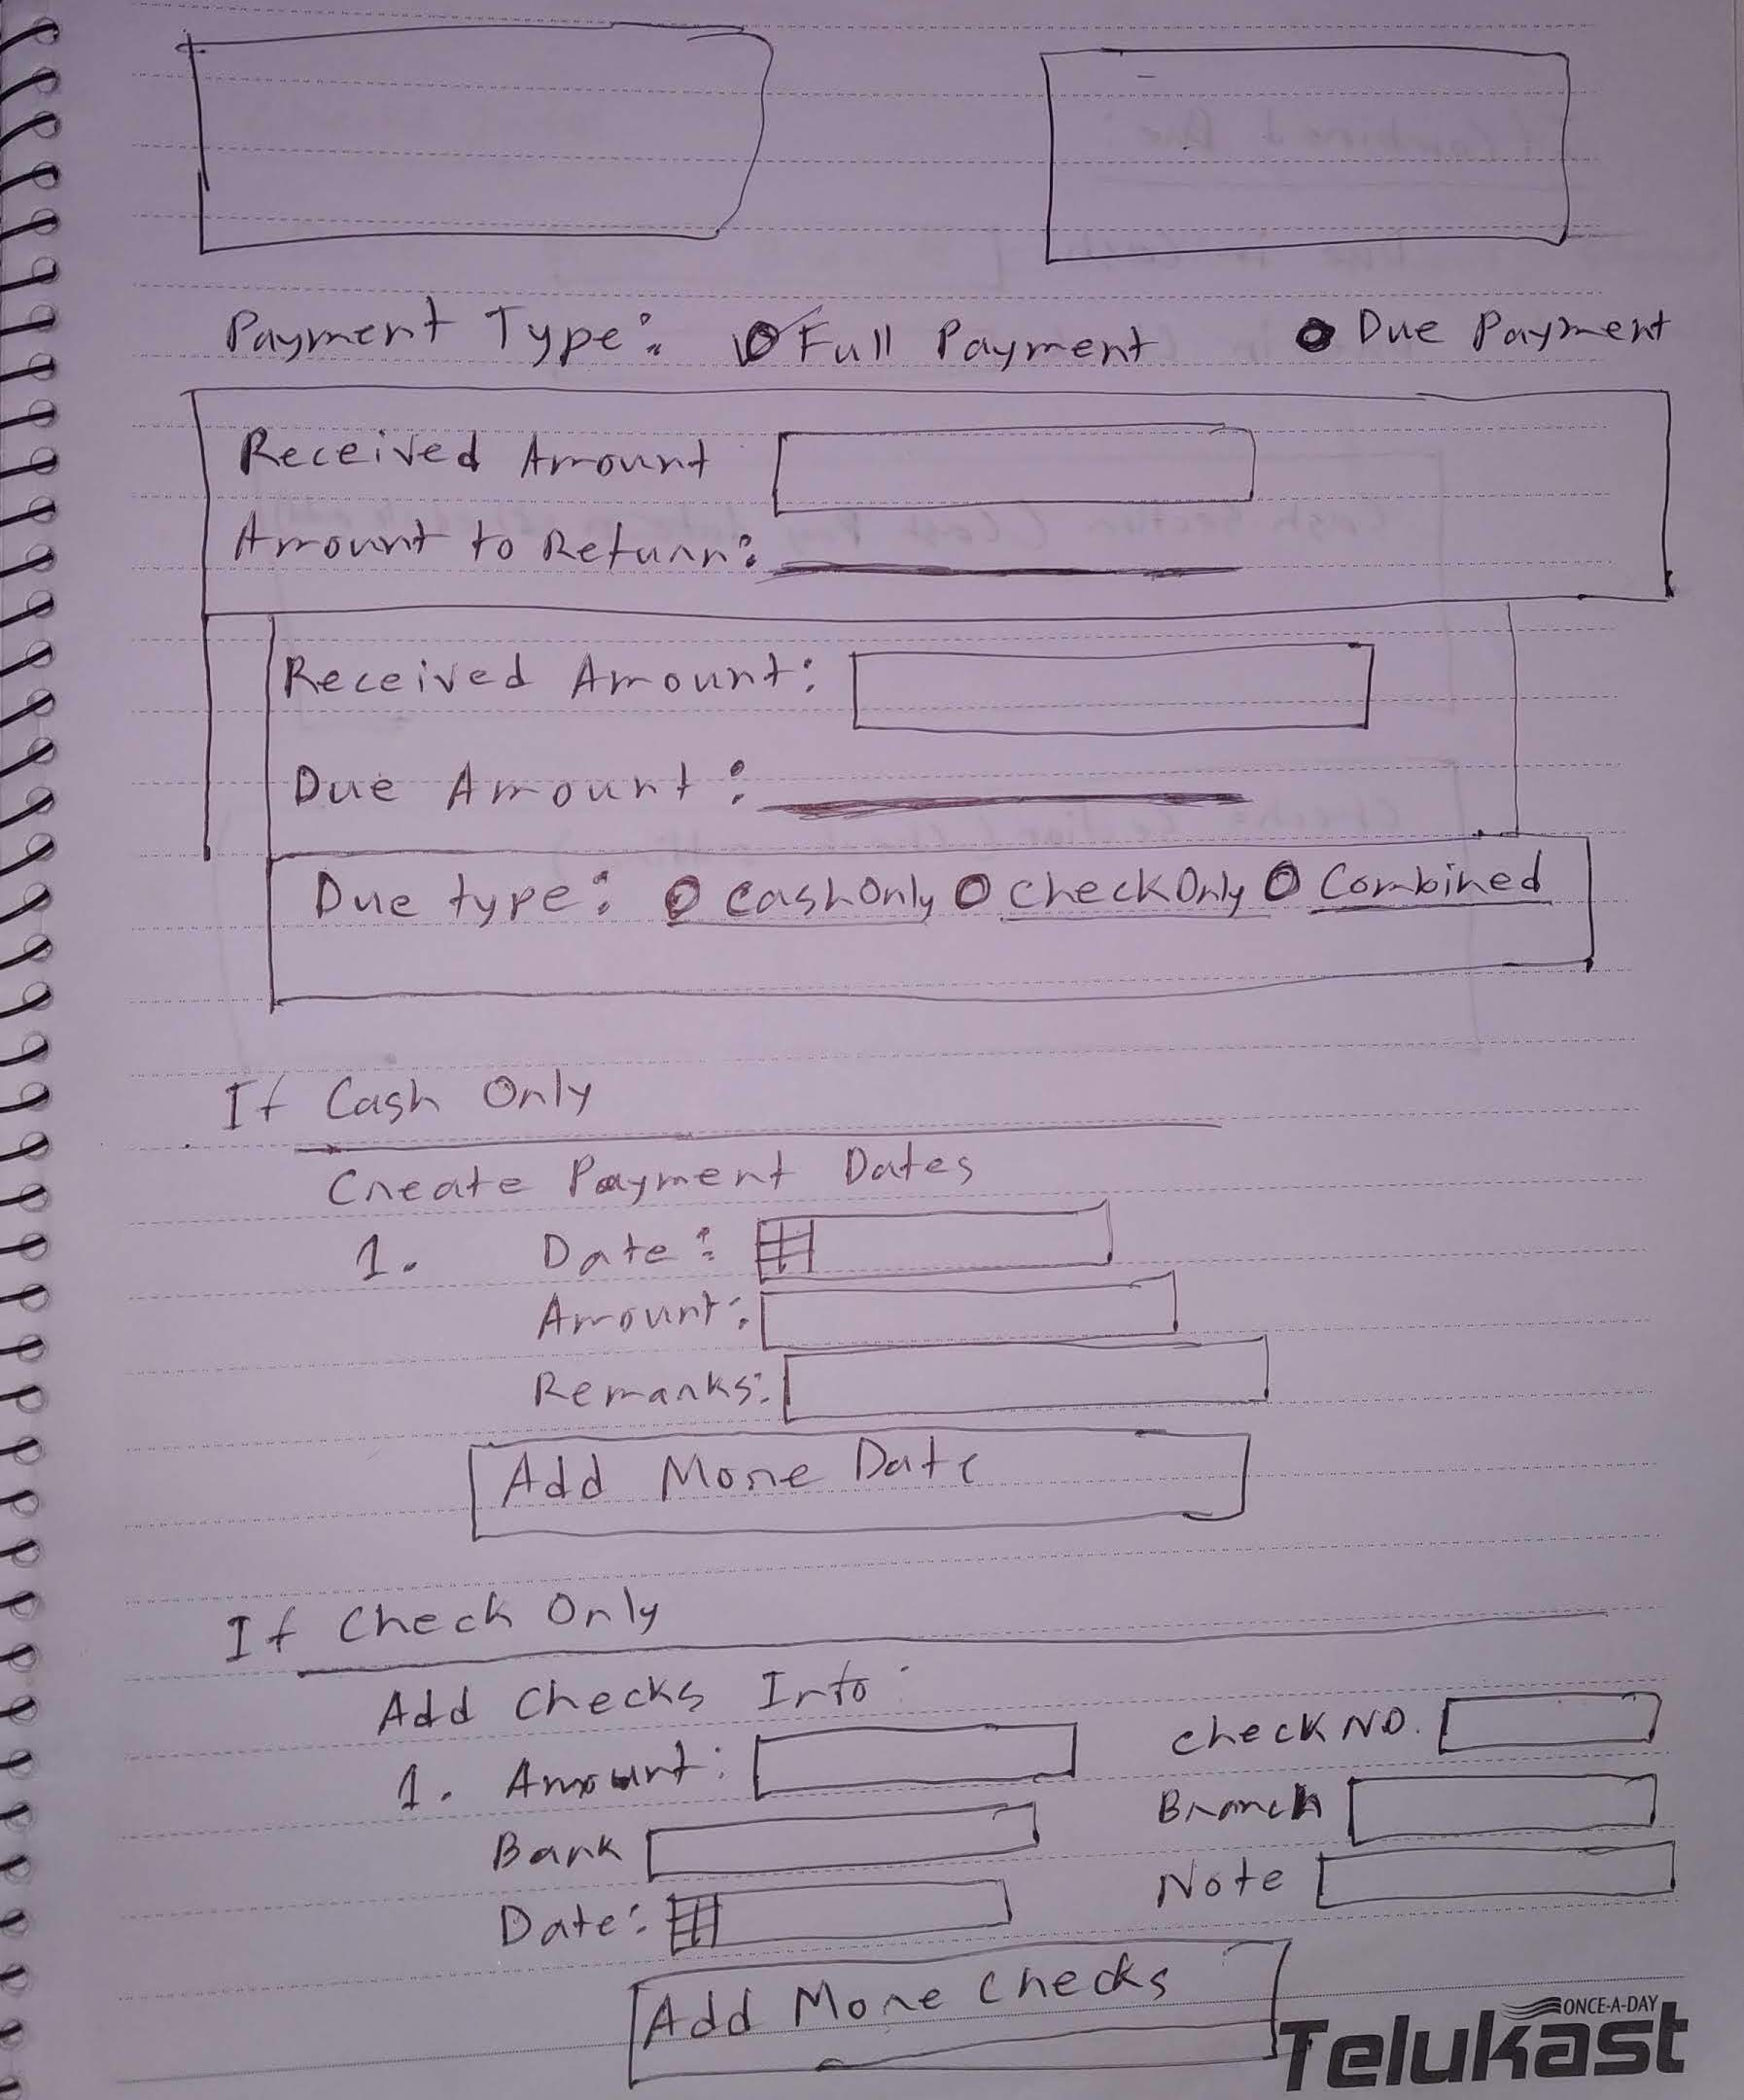 Payment Type: Full Payment Due Payment
Received Amount
Amount to Return:
Received Amount:
Due Amount:
Due type: Cash Only Check Only Combined
If Cash Only
Create Payment Dates
1. Date:
Amount:
Remarks:
Add More Date
If Check Only
Add Checks Info:
1. Amount: Check NO.
Bank Branch
Date: Note
Add More Checks
ONCE-A-DAY
Telukast